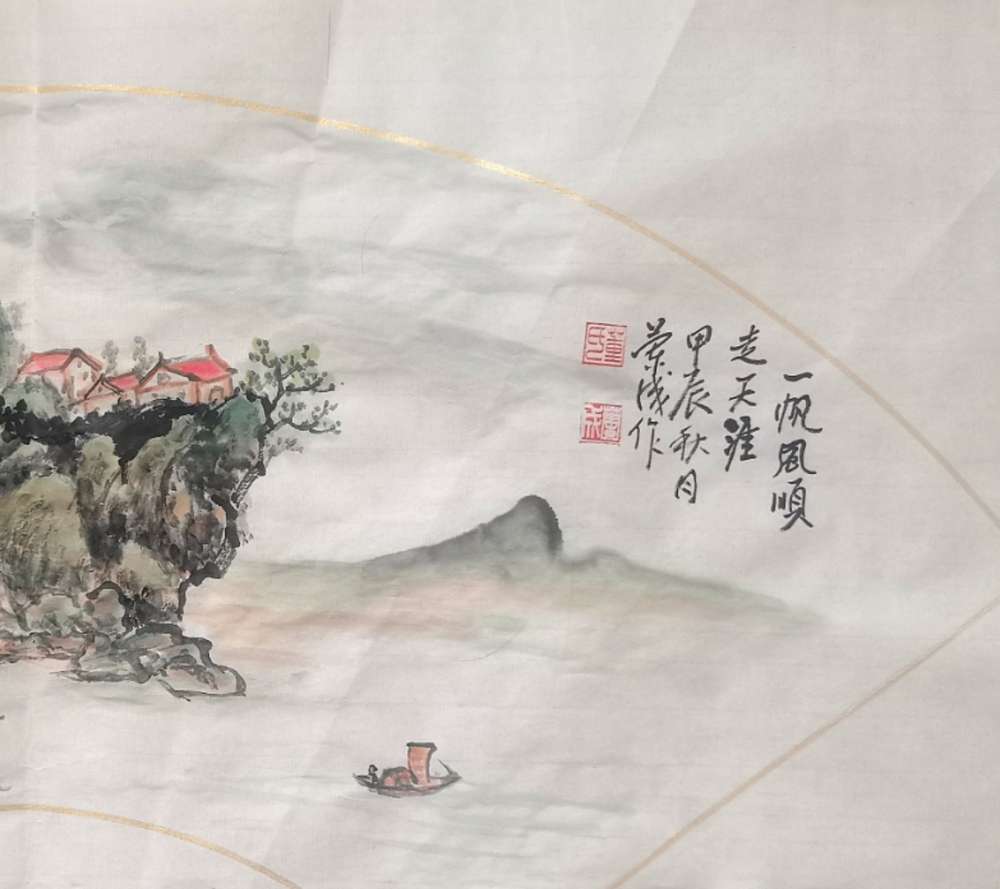 一帆風順
走天涯
甲辰秋月
荣成作
董氏